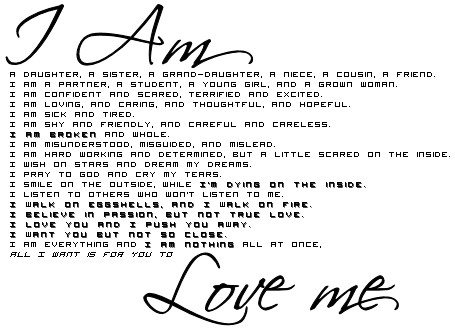 I Am
A DAUGHTER, A SISTER, A GRAND-DAUGHTER, A NIECE, A COUSIN, A FRIEND.
I AM A PARTNER, A STUDENT, A YOUNG GIRL, AND A GROWN WOMAN.
I AM CONFIDENT AND SCARED, TERRIFIED AND EXCITED.
I AM LOVING, AND CARING, AND THOUGHTFUL, AND HOPEFUL.
I AM SICK AND TIRED.
I AM SHY AND FRIENDLY, AND CAREFUL AND CARELESS.
I AM BROKEN AND WHOLE.
I AM MISUNDERSTOOD, MISGUIDED, AND MISLEAD.
I AM HARD WORKING AND DETERMINED, BUT A LITTLE SCARED ON THE INSIDE.
I WISH ON STARS AND DREAM MY DREAMS.
I PRAY TO GOD AND CRY MY TEARS.
I SMILE ON THE OUTSIDE, WHILE I'M DYING ON THE INSIDE.
I LISTEN TO OTHERS WHO WON'T LISTEN TO ME.
I WALK ON EGGSHELLS, AND I WALK ON FIRE.
I BELIEVE IN PASSION, BUT NOT TRUE LOVE.
I LOVE YOU AND I PUSH YOU AWAY.
I WANT YOU BUT NOT SO CLOSE.
I AM EVERYTHING AND I AM NOTHING ALL AT ONCE,
ALL I WANT IS FOR YOU TO
Love me